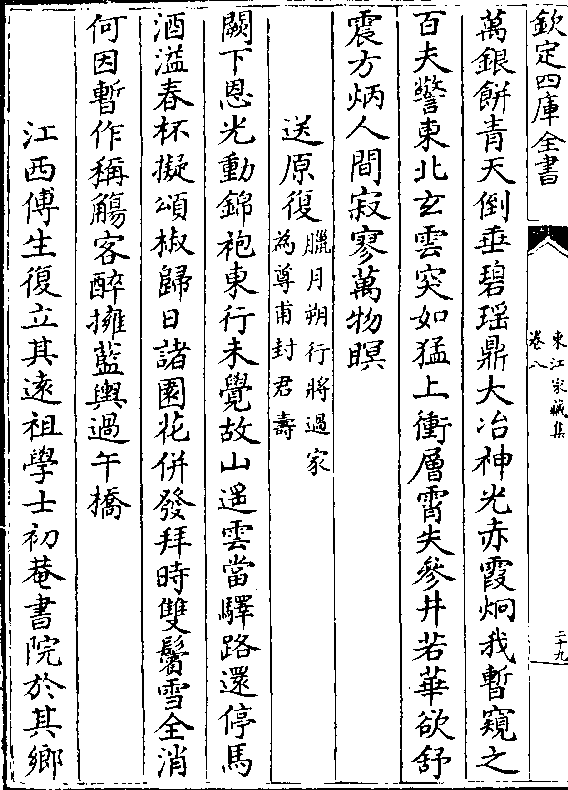 欽定四庫全書
東江家藏集
卷八
二十九
萬銀餅青天倒垂碧瑶鼎大冶神光赤霞炯我暫窺之
百夫警東北玄雲突如猛上衝層霄失參井若華欲舒
震方炳人間寂寥萬物暝
送原復臘月朔行將過家
為尊甫封君壽
闕下恩光動錦袍東行未覺故山遥雲當驛路還停馬
酒溢春杯擬頌椒歸日諸園花併發拜時雙鬢雪全消
何因暫作稱觴客醉擁藍輿過午橋
江西傅生復立其逺祖學士初菴書院於其鄉